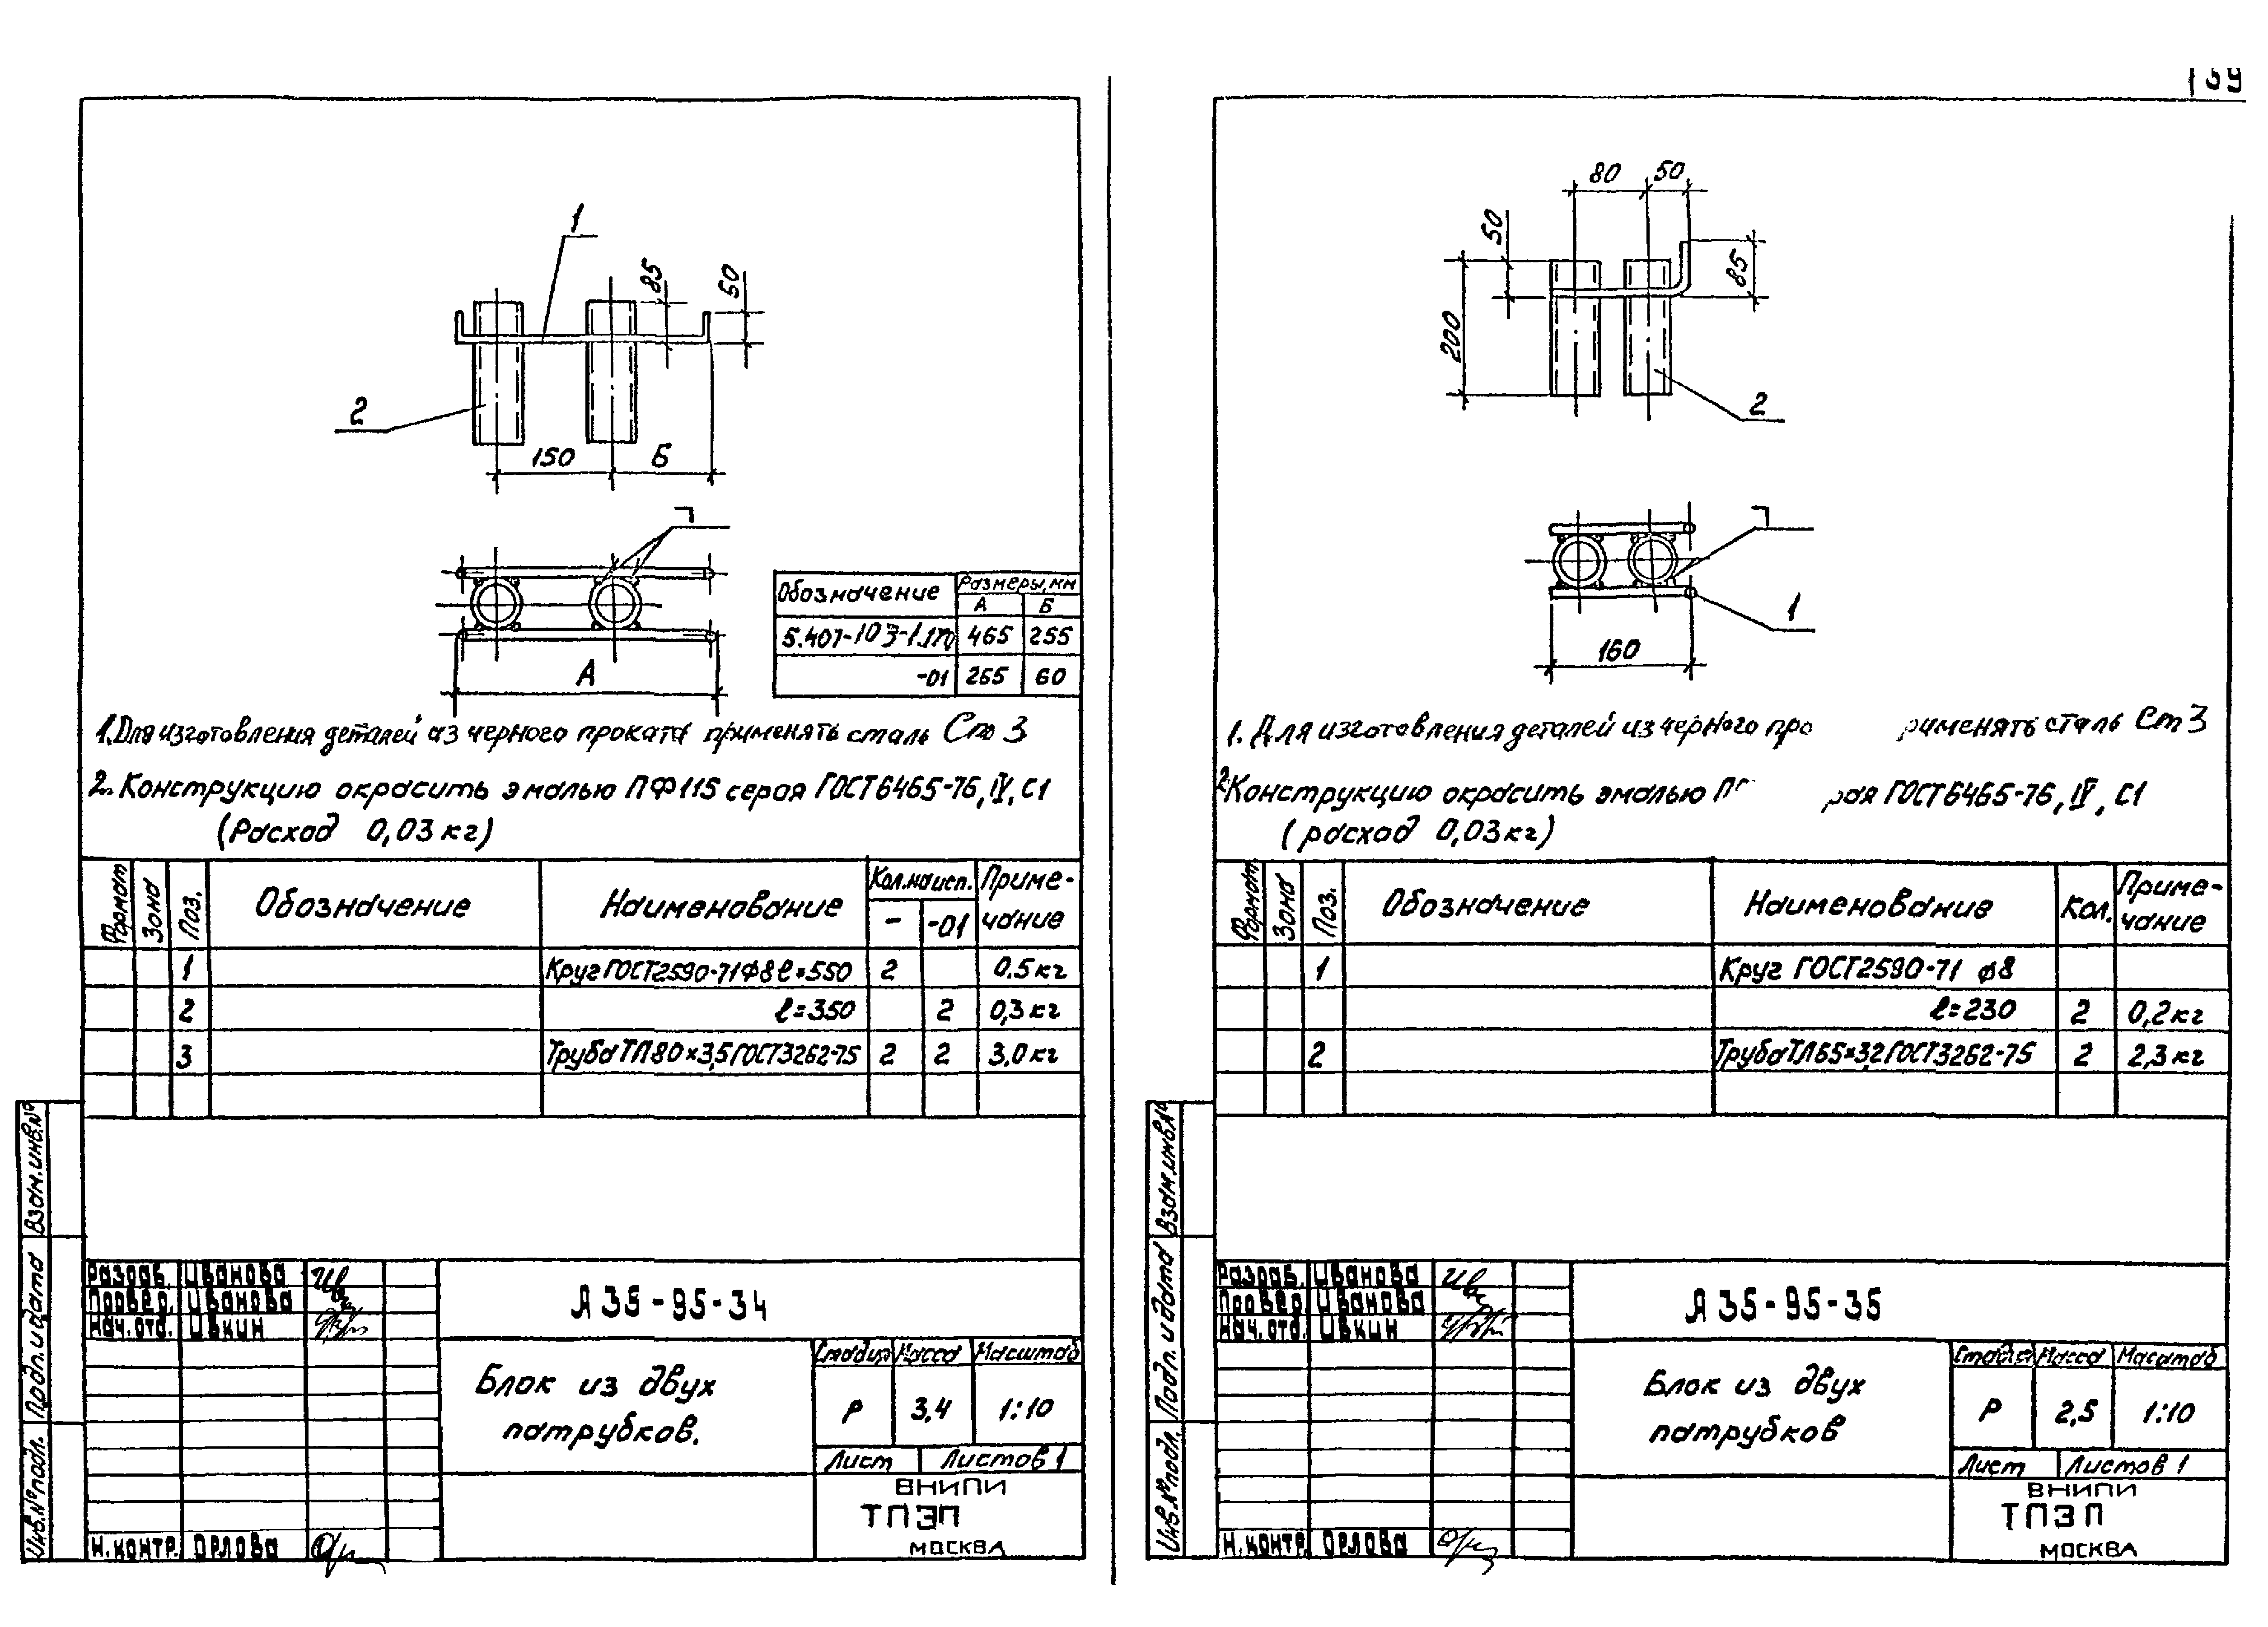 1
85
50
2
150
Б
А
Обозначение
Размеры, мм
А
Б
465
255
-01
265
60
1. Для изготовления деталей из черного проката применять сталь Ст 3
2. Конструкцию окрасить эмалью ПФ115 серая ГОСТ6465-76, IV, С1
(Расход 0,03 кг)
Формат
Зона
Поз.
Обозначение
Наименование
Кол. на исп.
-
-01
Приме-
чание
1
Круг ГОСТ2590-71 ф8 ℓ=550
2
0.5 кг
2
ℓ=350
2
0,3 кг
3
Труба ТЛ 80×3,5 ГОСТ3262-75
2
2
3,0 кг
Взам. инв. №
Подп. и дата
Инв. № подл.
Разраб. Иванова
Провер. Иванова
Нач. отд. Ивкин
Н. контр. Орлова
А 35-95-34
Блок из двух
патрубков.
Стадия
Масса
Масштаб
Р
3,4
1:10
Лист
Листов 1
ВНИПИ
ТПЭП
МОСКВА
80
50
50
85
200
2
1
160
1. Для изготовления деталей из черного про рименять сталь Ст 3
2 Конструкцию окрасить эмалью П рая ГОСТ6465-76, IV, С1
(расход 0,03 кг)
Формат
Зона
Поз.
Обозначение
Наименование
Кол.
Приме-
чание
1
Круг ГОСТ2590-71 ф8
ℓ=230
2
0,2 кг
2
Труба ТЛ 65×3,2 ГОСТ3262-75
2
2,3 кг
Взам. инв. №
Подп. и дата
Инв. № подл.
Разраб. Иванова
Провер. Иванова
Нач. отд. Ивкин
Н. контр. Орлова
А 35-95-35
Блок из двух
патрубков
Стадия
Масса
Масштаб
Р
2,5
1:10
Лист
Листов 1
ВНИПИ
ТПЭП
МОСКВА